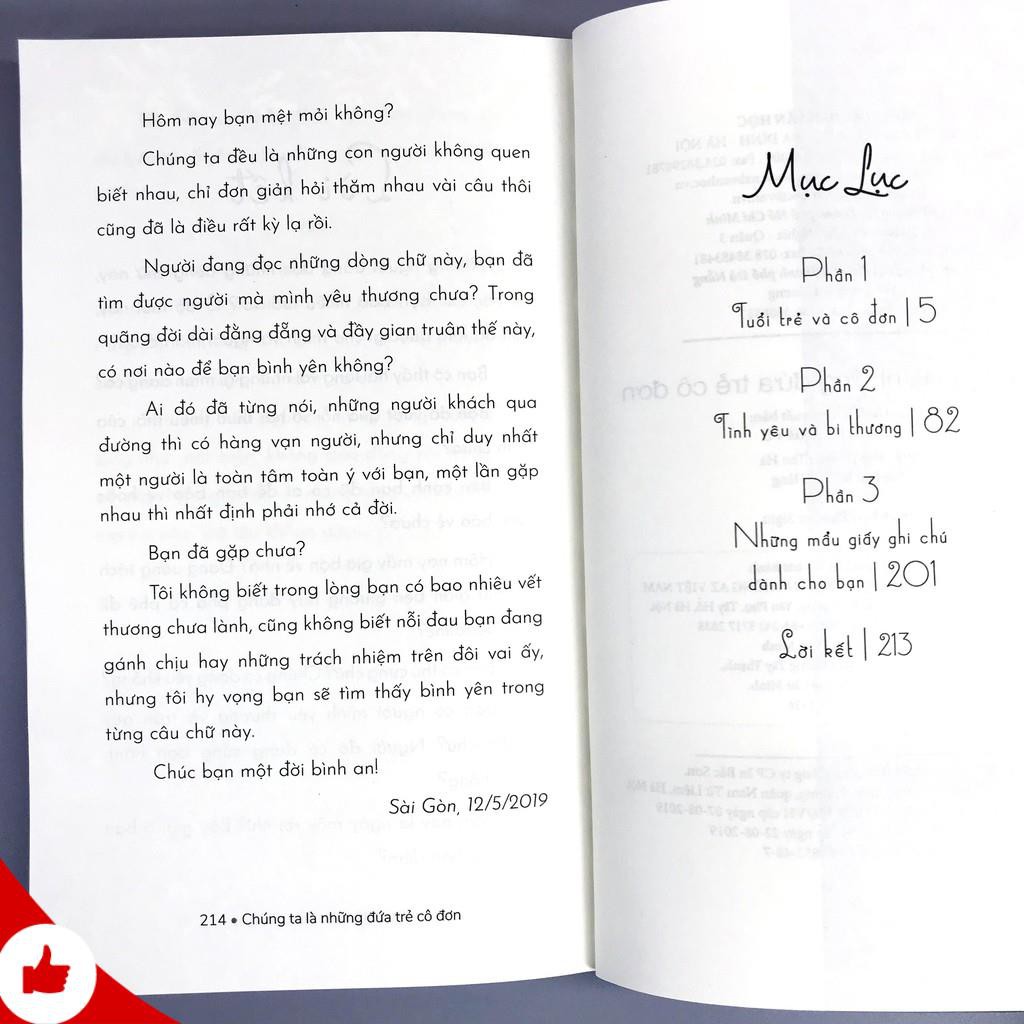 Hôm nay bạn mệt mỏi không?
Chúng ta đều là những con người không quen
biết nhau, chỉ đơn giản hỏi thăm nhau vài câu thôi
cũng đã là điều rất kỳ lạ rồi.
Người đang đọc những dòng chữ này, bạn đã
tìm được người mà mình yêu thương chưa? Trong
quãng đời dài đằng đẵng và đầy gian truân thế này,
có nơi nào để bạn bình yên không?
Ai đó đã từng nói, những người khách qua
đường thì có hàng vạn người, nhưng chỉ duy nhất
một người là toàn tâm toàn ý với bạn, một lần gặp
nhau thì nhất định phải nhớ cả đời.
Bạn đã gặp chưa?
Tôi không biết trong lòng bạn có bao nhiêu vết
thương chưa lành, cũng không biết nỗi đau bạn đang
gánh chịu hay những trách nhiệm trên đôi vai ấy,
nhưng tôi hy vọng bạn sẽ tìm thấy bình yên trong
từng câu chữ này.
Chúc bạn một đời bình an!
Sài Gòn, 12/5/2019
214 • Chúng ta là những đứa trẻ cô đơn
Mục Lục
Phần 1
Tuổi trẻ và cô đơn | 5
Phần 2
Tình yêu và bi thương | 82
Phần 3
Những mẩu giấy ghi chú
dành cho bạn | 201
Lời kết | 213